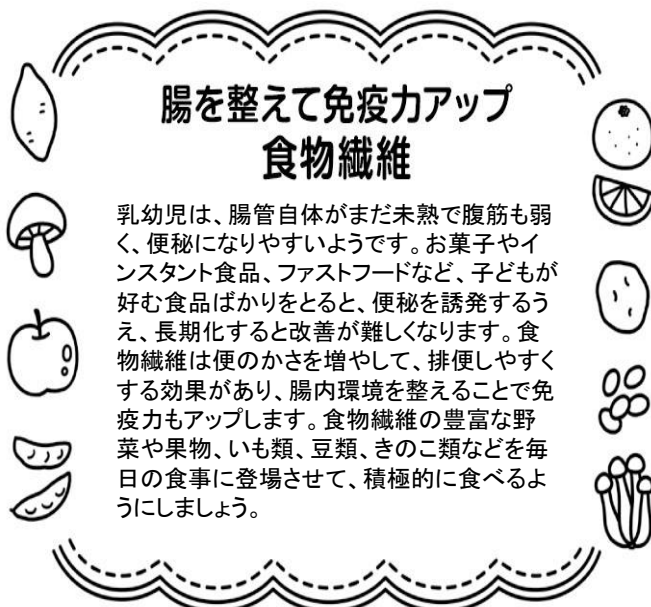 腸を整えて免疫力アップ
食物繊維
乳幼児は、腸管自体がまだ未熟で腹筋も弱
く、便秘になりやすいようです。お菓子やイ
ンスタント食品、ファストフードなど、子どもが
好む食品ばかりをとると、便秘を誘発するう
え、長期化すると改善が難しくなります。食
物繊維は便のかさを増やして、排便しやすく
する効果があり、腸内環境を整えることで免
疫力もアップします。食物繊維の豊富な野
菜や果物、いも類、豆類、きのこ類などを毎
日の食事に登場させて、積極的に食べるよ
うにしましょう。